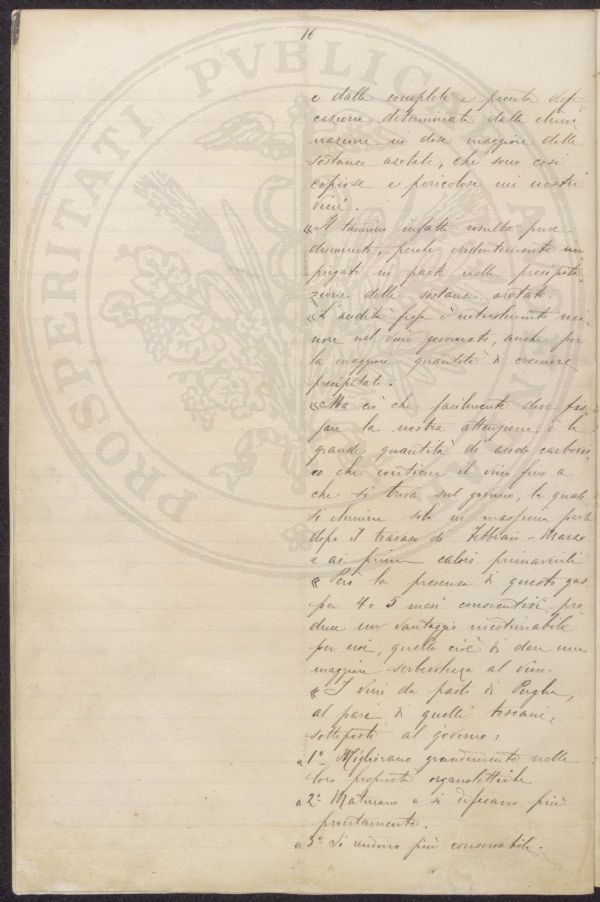 16
e dalla completa e pronta defe-
cazione determinata dalla elimi-
nazione in dose maggiore delle
sostanze azotate, che sono così
copiose e pericolose nei nostri
vini.
« Il tannino infatti risulta
evidentemente im-
piegato in parte nella precipita-
zione delle sostanze azotate.
« L'acidità fissa è mi-
nore nel vino governato, anche per
la maggiore quantità di cremore
precipitato.
« Ma ciò che facilmente deve fis-
sare la nostra attenzione è la
grande quantità di acido carboni-
co che contiene il vino fino a
che si trova sul governo, la quale
si elimina solo in massima parte
dopo il travaso di Febbraio-Marzo
e ai primi calori primaverili
« Però la presenza di questo gas
per 4 o 5 mesi consecutivi, pro-
duce un vantaggio inestimabile
per noi, quello cioè di dare una
maggiore serbevolezza al vino.
« I vini da pasto di Puglia,
al pari di quelli toscani,
sottoposti al governo:
« 1º Migliorano grandemente nelle
loro proprietà organolettiche
« 2º Maturano e si defecano più
prontamente.
« 3º Si rendono più conservabili.
PROSPERITATI PVBLICAE